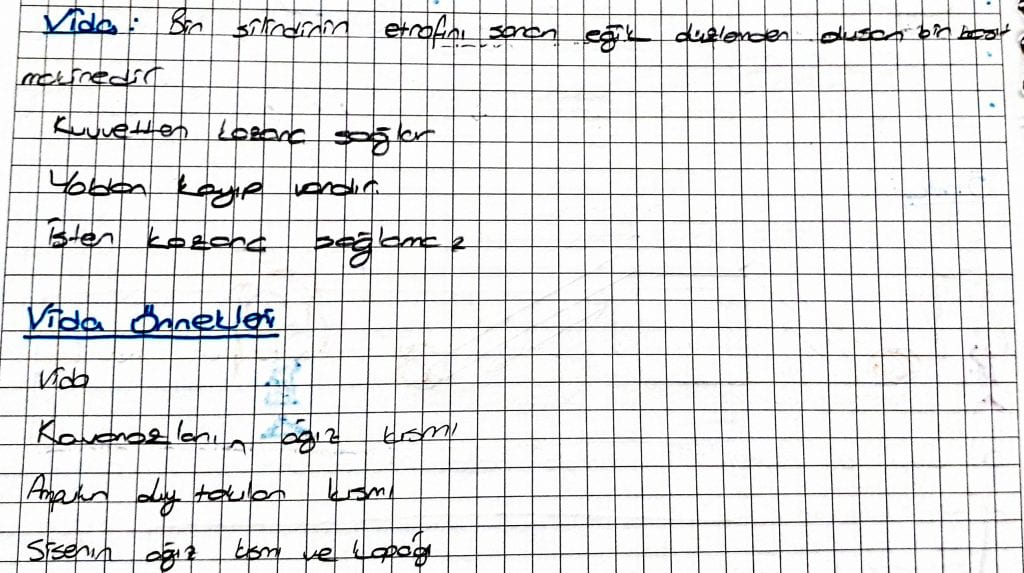 Vida: Bir silindirin etrafını saran eğik düzlemden oluşan bir basit
makinedir
Kuvvetten kazanç sağlar
Yoldan kayıp vardır.
İşten kazanç sağlamaz
Vida Örnekleri
Vida
Kavanozların ağız kısmı
Ampulün duy takılan kısmı
Şişenin ağız kısmı ve kapağı